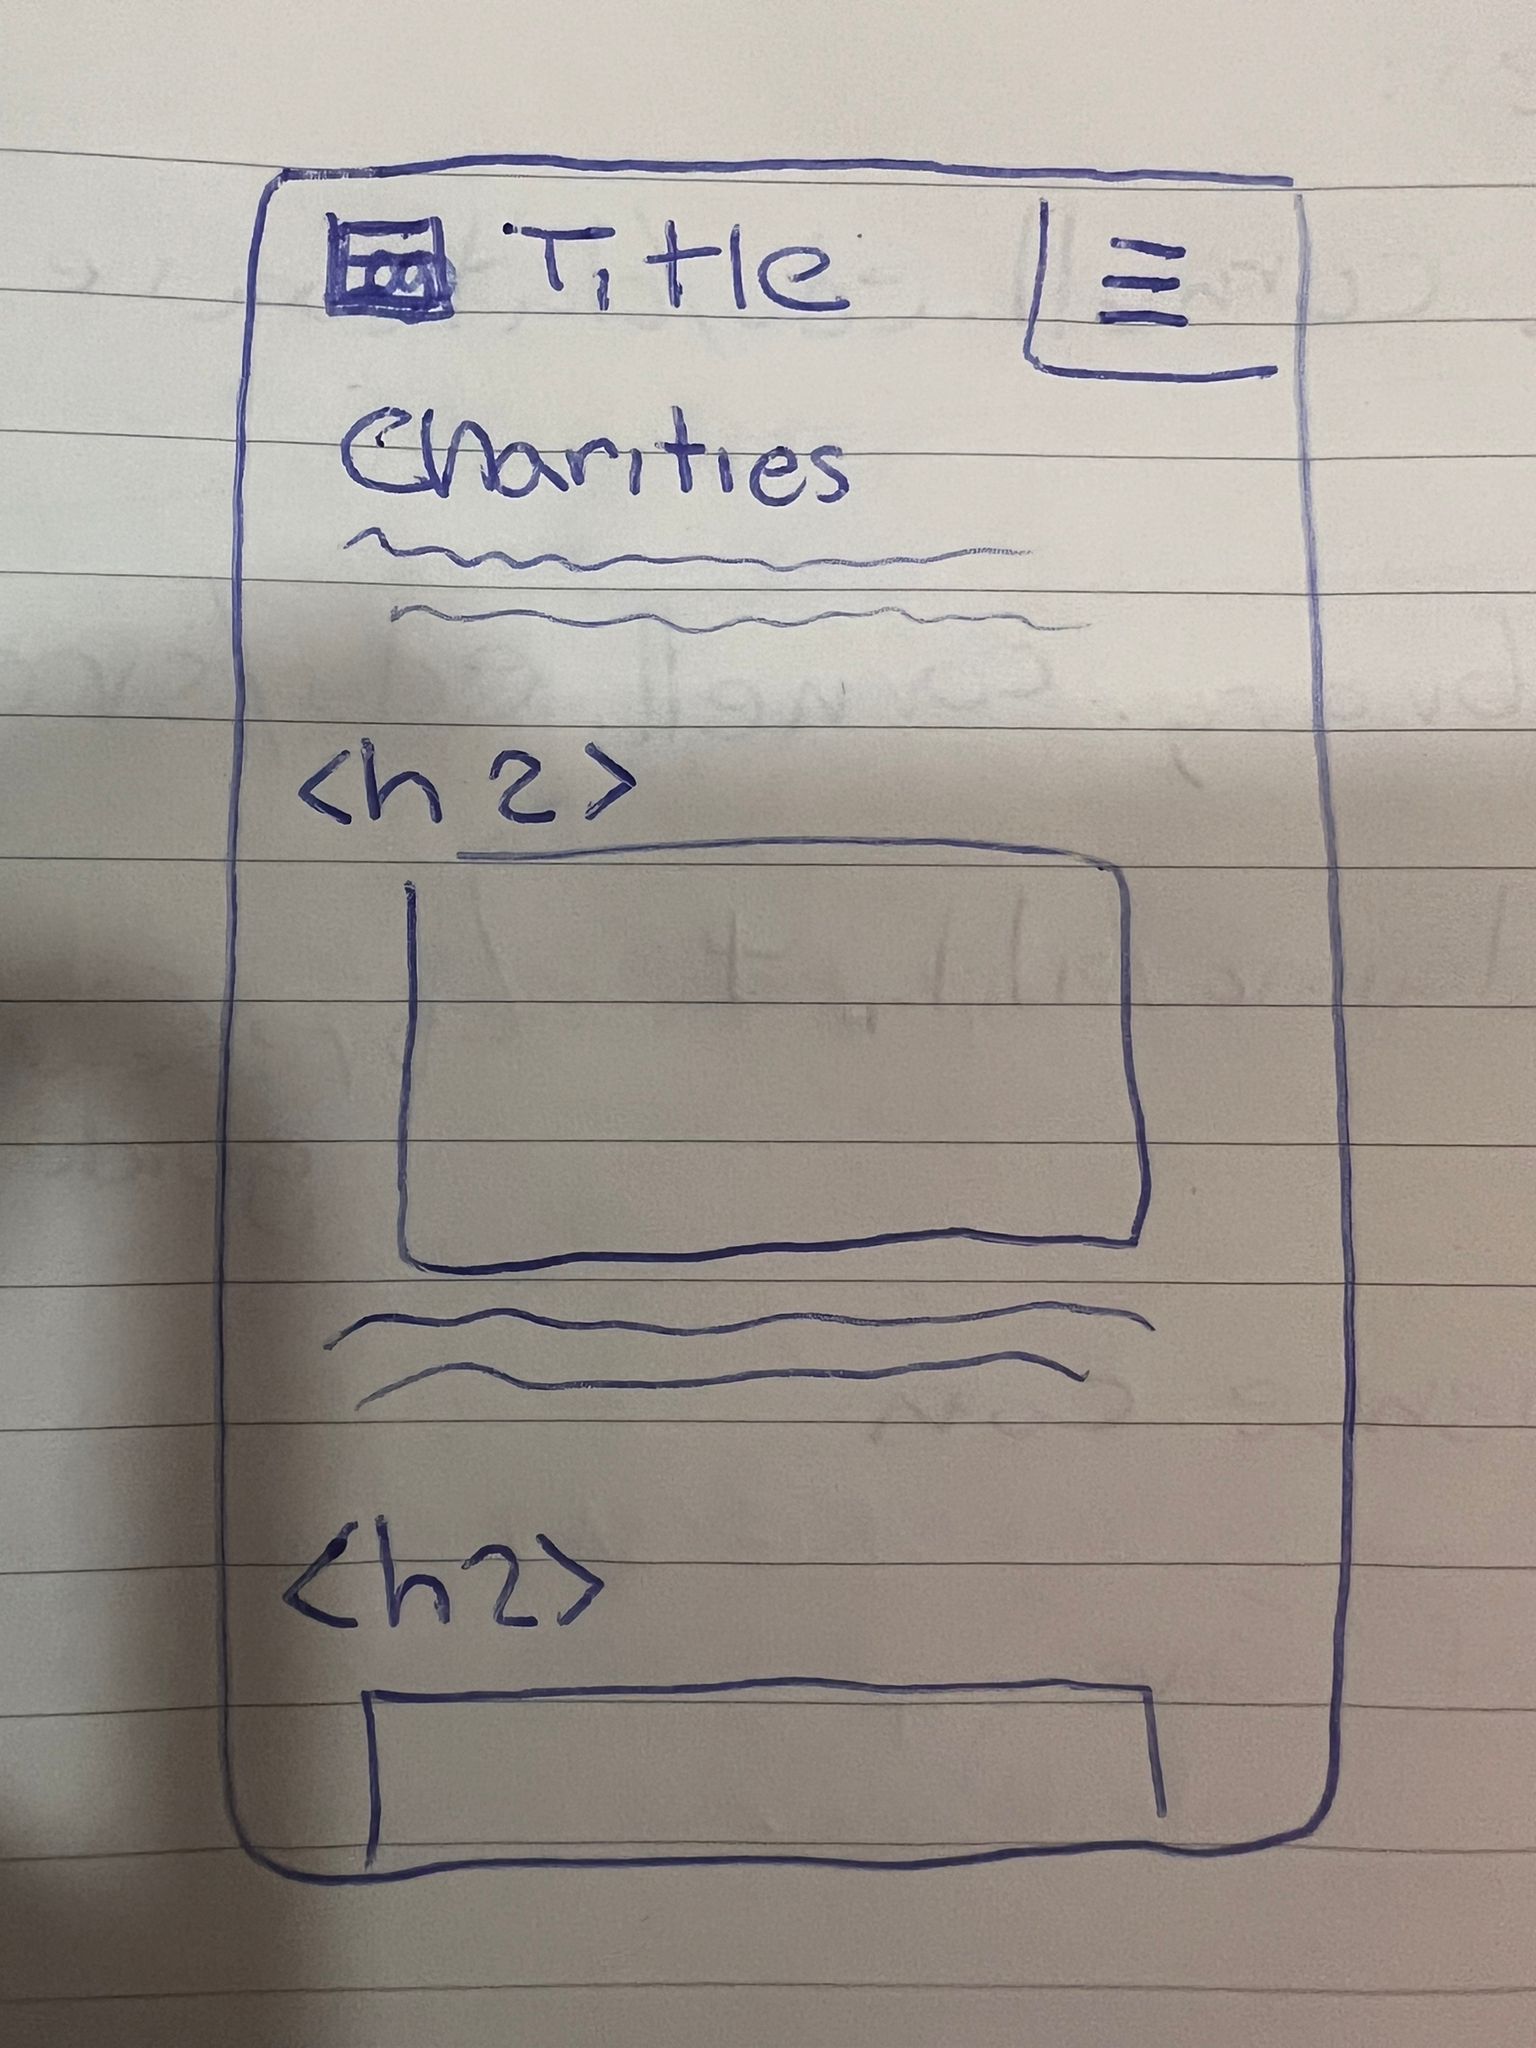 Title
Charities
<h2>
<h2>